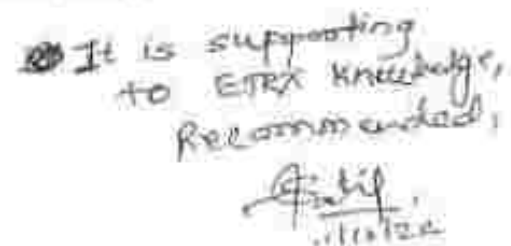 It is supporting
to ETRX Knowledge,
Recommended.